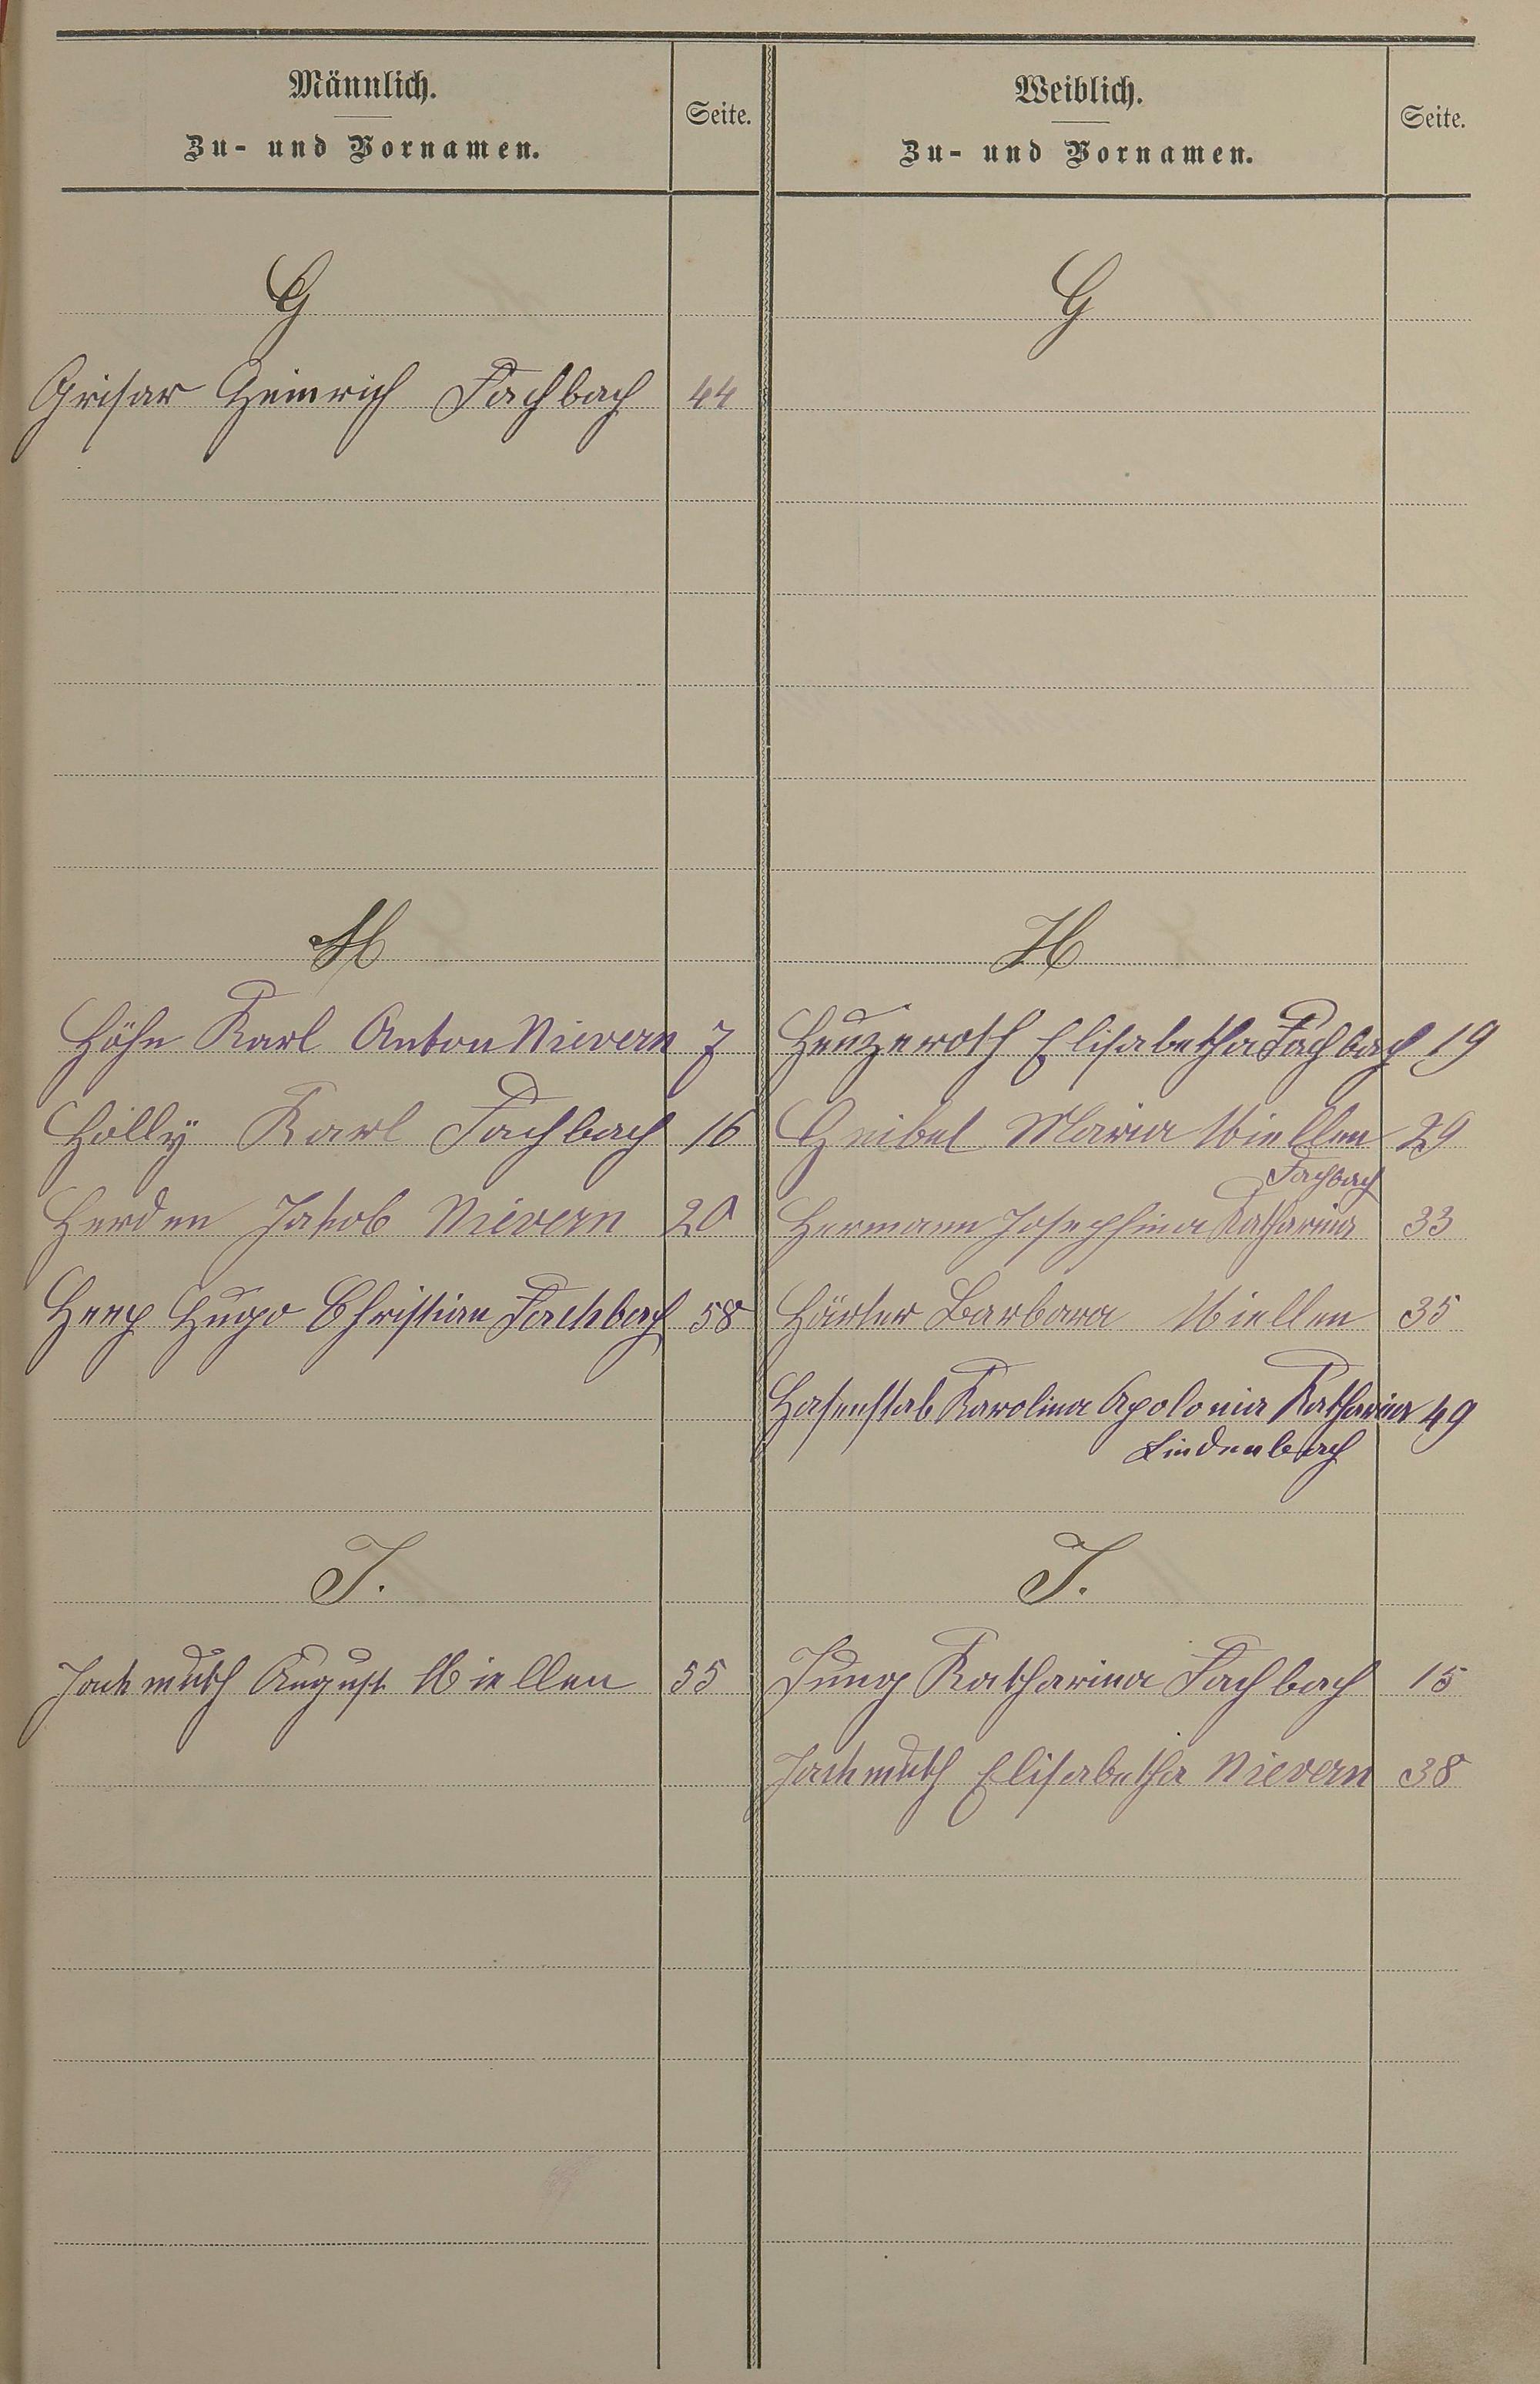 Männlich.
Zu- und Vornamen.
Seite.
G
Grisar Heinrich Fachbach 44
H
Höhn Karl Anton Nievern 7
Holly Karl Fachbach 16
Herden Jakob Nievern 20
Hugo Christian Fachbach 58
J.
Jachmuth August Miellen 55
Weiblich.
Zu- und Vornamen.
Seite.
G
H
Heuzeroth Elisabetha Fachbach 19
Heibel Maria Miellen 29
Fachbach
Hermann Josephina Katharina 33
Härter Barbara Miellen 35
Hasenstab Karolina Apolonia Katharina 49
Lindenbach
J.
Jung Katharina Fachbach 15
Jachmuth Elisabetha Nievern 38